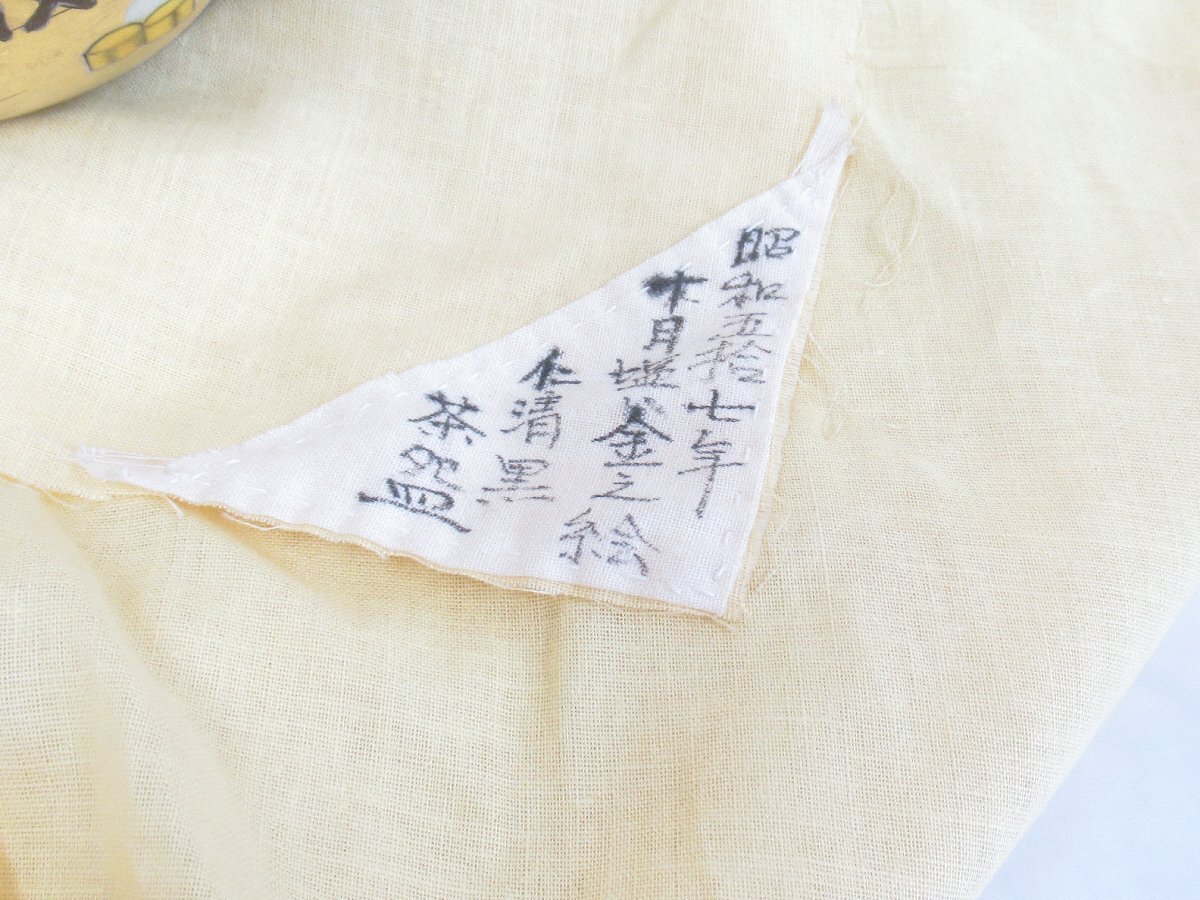 昭和五拾七年
十月塩金之絵
仁清黒
茶盌